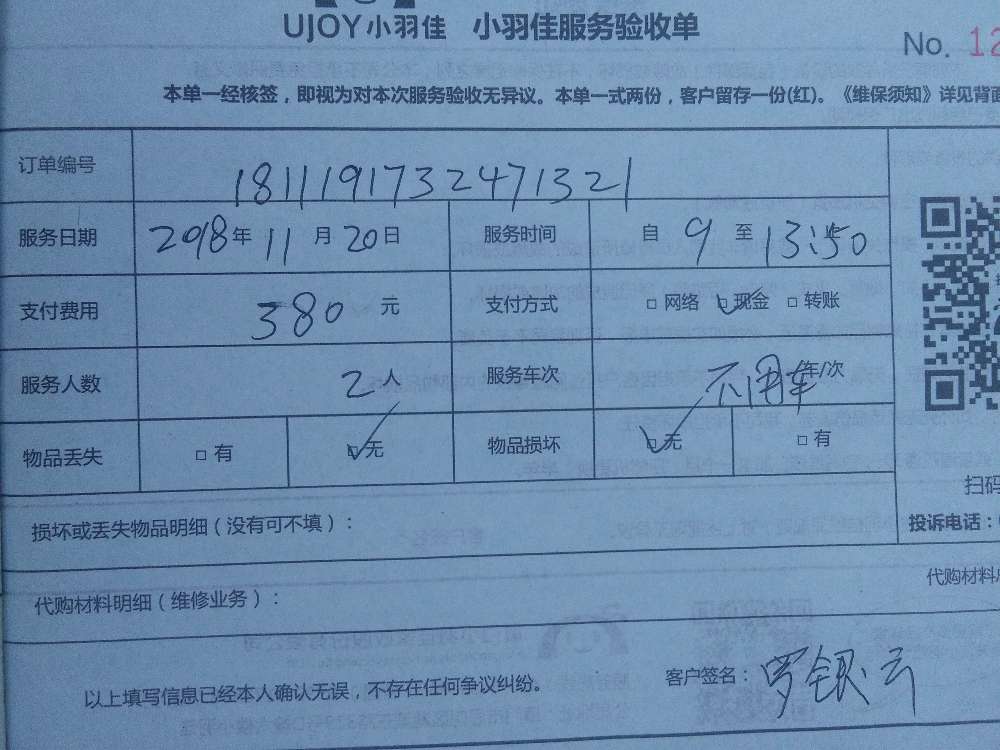 UJOY小羽佳 小羽佳服务验收单
No. 12
本单一经核签，即视为对本次服务验收无异议。本单一式两份，客户留存一份(红)。《维保须知》详见背面
订单编号 1811191732471321
服务日期 2018年11月20日 服务时间 自9至13:50
支付费用 380元 支付方式 □网络 ☑现金 □转账
服务人数 2人 服务车次 不用车 车/次
物品丢失 □有 ☑无 物品损坏 ☑无 □有
扫码
损坏或丢失物品明细（没有可不填）：
投诉电话：
代购材料明细（维修业务）：
代购材料
以上填写信息已经本人确认无误，不存在任何争议纠纷。
客户签名：罗银云